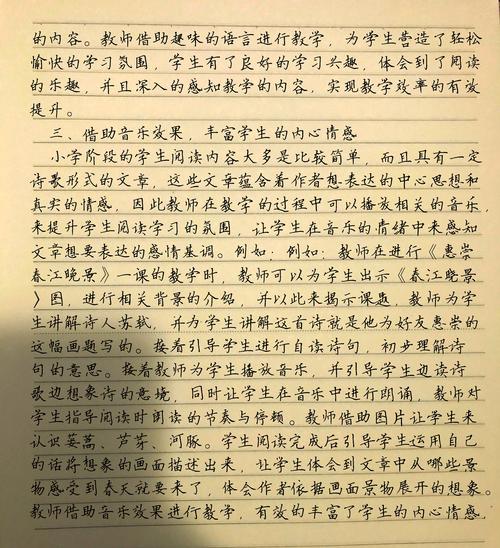 的内容。教师借助趣味的语言进行教学，为学生营造了轻松
愉快的学习氛围，学生有了良好的学习兴趣，体会到了阅读
的乐趣，并且深入的感知教学的内容，实现教学效率的有效
提升。
三、借助音乐效果，丰富学生的内心情感
小学阶段的学生阅读内容大多是比较简单，而且具有一定
诗歌形式的文章，这些文章蕴含着作者想表达的中心思想和
真实的情感，因此教师在教学的过程中可以播放相关的音乐，
来提升学生阅读学习的氛围，让学生在音乐的情绪中来感知
文章想要表达的感情基调。例如：例如：教师在进行《惠崇
春江晚景》一课的教学时，教师可以为学生出示《春江晚景
》图，进行相关背景的介绍，并以此来揭示课题，教师为学
生讲解诗人苏轼，并为学生讲解这首诗就是他为好友惠崇的
这幅画题写的。接着引导学生进行自读诗句，初步理解诗
句的意思。接着教师为学生播放音乐，并引导学生边读诗
歌边想象诗的意境，同时让学生在音乐中进行朗诵，教师对
学生指导阅读时朗读的节奏与停顿。教师借助图片让学生来
认识蒌蒿、芦芽、河豚。学生阅读完成后引导学生运用自己
的话将想象的画面描述出来，让学生体会到文章中从哪些景
物感受到春天就要来了，体会作者依据画面景物展开的想象。
教师借助音乐效果进行教学，有效的丰富了学生的内心情感。